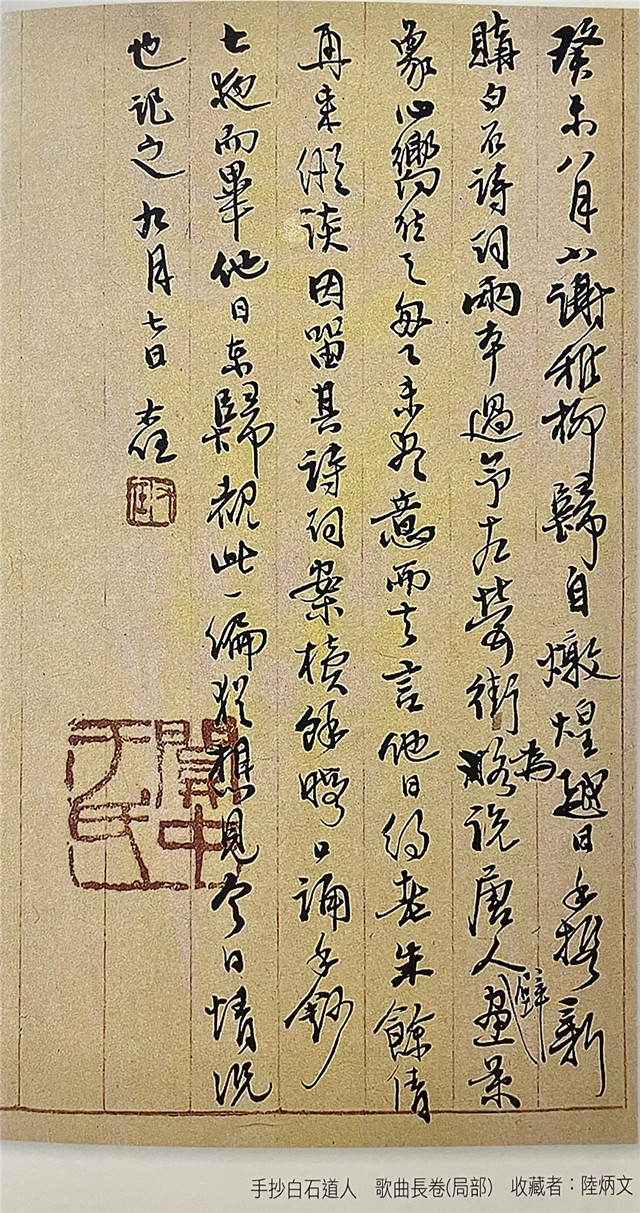 癸未八月小謝稚柳歸自燉煌越日手攜新
購白石詩詞兩本過予左營街略為說唐人壁畫景
象心嚮往之未盡意而去言他日約老朱餘清
再來縱談因留其詩詞案櫝餘暇口誦手鈔
七夜而畢他日東歸視此一編猶想見今日情況
也記之九月七日
手抄白石道人 歌曲長卷(局部) 收藏者：陸炳文